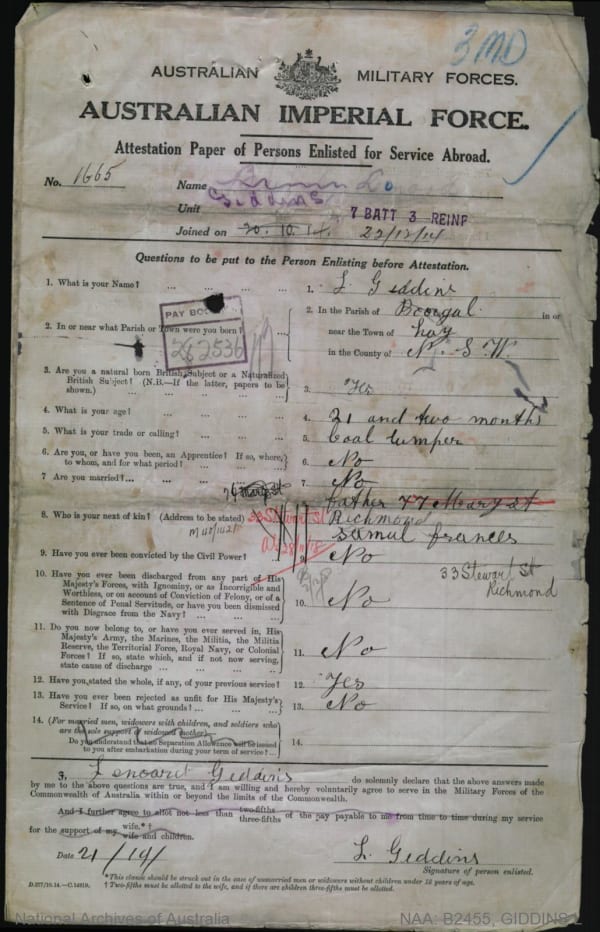 3 MD
AUSTRALIAN MILITARY FORCES.
AUSTRALIAN IMPERIAL FORCE.
Attestation Paper of Persons Enlisted for Service Abroad.
No. 1665 Name
Giddins
Unit 7 BATT 3 REINF
Joined on 20.10.14. 22/12/14
Questions to be put to the Person Enlisting before Attestation.
1. What is your Name? ... ... ... 1. L Giddins
2. In or near what Parish or Town were you born? 2. In the Parish of Boorgal in or
near the Town of hay
in the County of N. S. W.
PAY BOOK
282536
3. Are you a natural born British Subject or a Naturalized British Subject? (N.B.—If the latter, papers to be shown.) ... 3. Yes
4. What is your age? ... ... ... 4. 21 and two months
5. What is your trade or calling? ... ... 5. Coal lumper
6. Are you, or have you been, an Apprentice? If so, where, to whom, and for what period? ... 6. No
7 Are you married? ... ... ... 7. No
father 77 Meary st
8. Who is your next of kin? (Address to be stated) Richmond
Samul frances
33 Stewart St
Richmond
9. Have you ever been convicted by the Civil Power? 9. No
10. Have you ever been discharged from any part of His Majesty's Forces, with Ignominy, or as Incorrigible and Worthless, or on account of Conviction of Felony, or of a Sentence of Penal Servitude, or have you been dismissed with Disgrace from the Navy? ... 10. No
11. Do you now belong to, or have you ever served in, His Majesty's Army, the Marines, the Militia, the Militia Reserve, the Territorial Force, Royal Navy, or Colonial Forces? If so, state which, and if not now serving, state cause of discharge ... 11. No
12. Have you stated the whole, if any, of your previous service? 12. Yes
13. Have you ever been rejected as unfit for His Majesty's Service? If so, on what grounds? ... 13. No
14. (For married men, widowers with children, and soldiers who are the sole support of widowed mother)—
Do you understand that no Separation Allowance will be issued to you after embarkation during your term of service? ... 14.
I, Lenoard Giddins do solemnly declare that the above answers made
by me to the above questions are true, and I am willing and hereby voluntarily agree to serve in the Military Forces of the
Commonwealth of Australia within or beyond the limits of the Commonwealth.
And I further agree to allot not less than two-fifths three-fifths of the pay payable to me from time to time during my service
for the support of my wife.*† wife and children.
Date 21/14/ L Giddins
Signature of person enlisted.
*This clause should be struck out in the case of unmarried men or widowers without children under 18 years of age.
† Two-fifths must be allotted to the wife, and if there are children three-fifths must be allotted.
D.277/10.14.—C.14819.
National Archives of Australia NAA: B2455, GIDDINS L